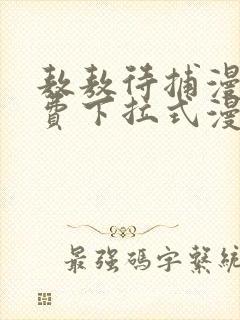 敖敖待捕漫
费下拉式漫
最强码字系统